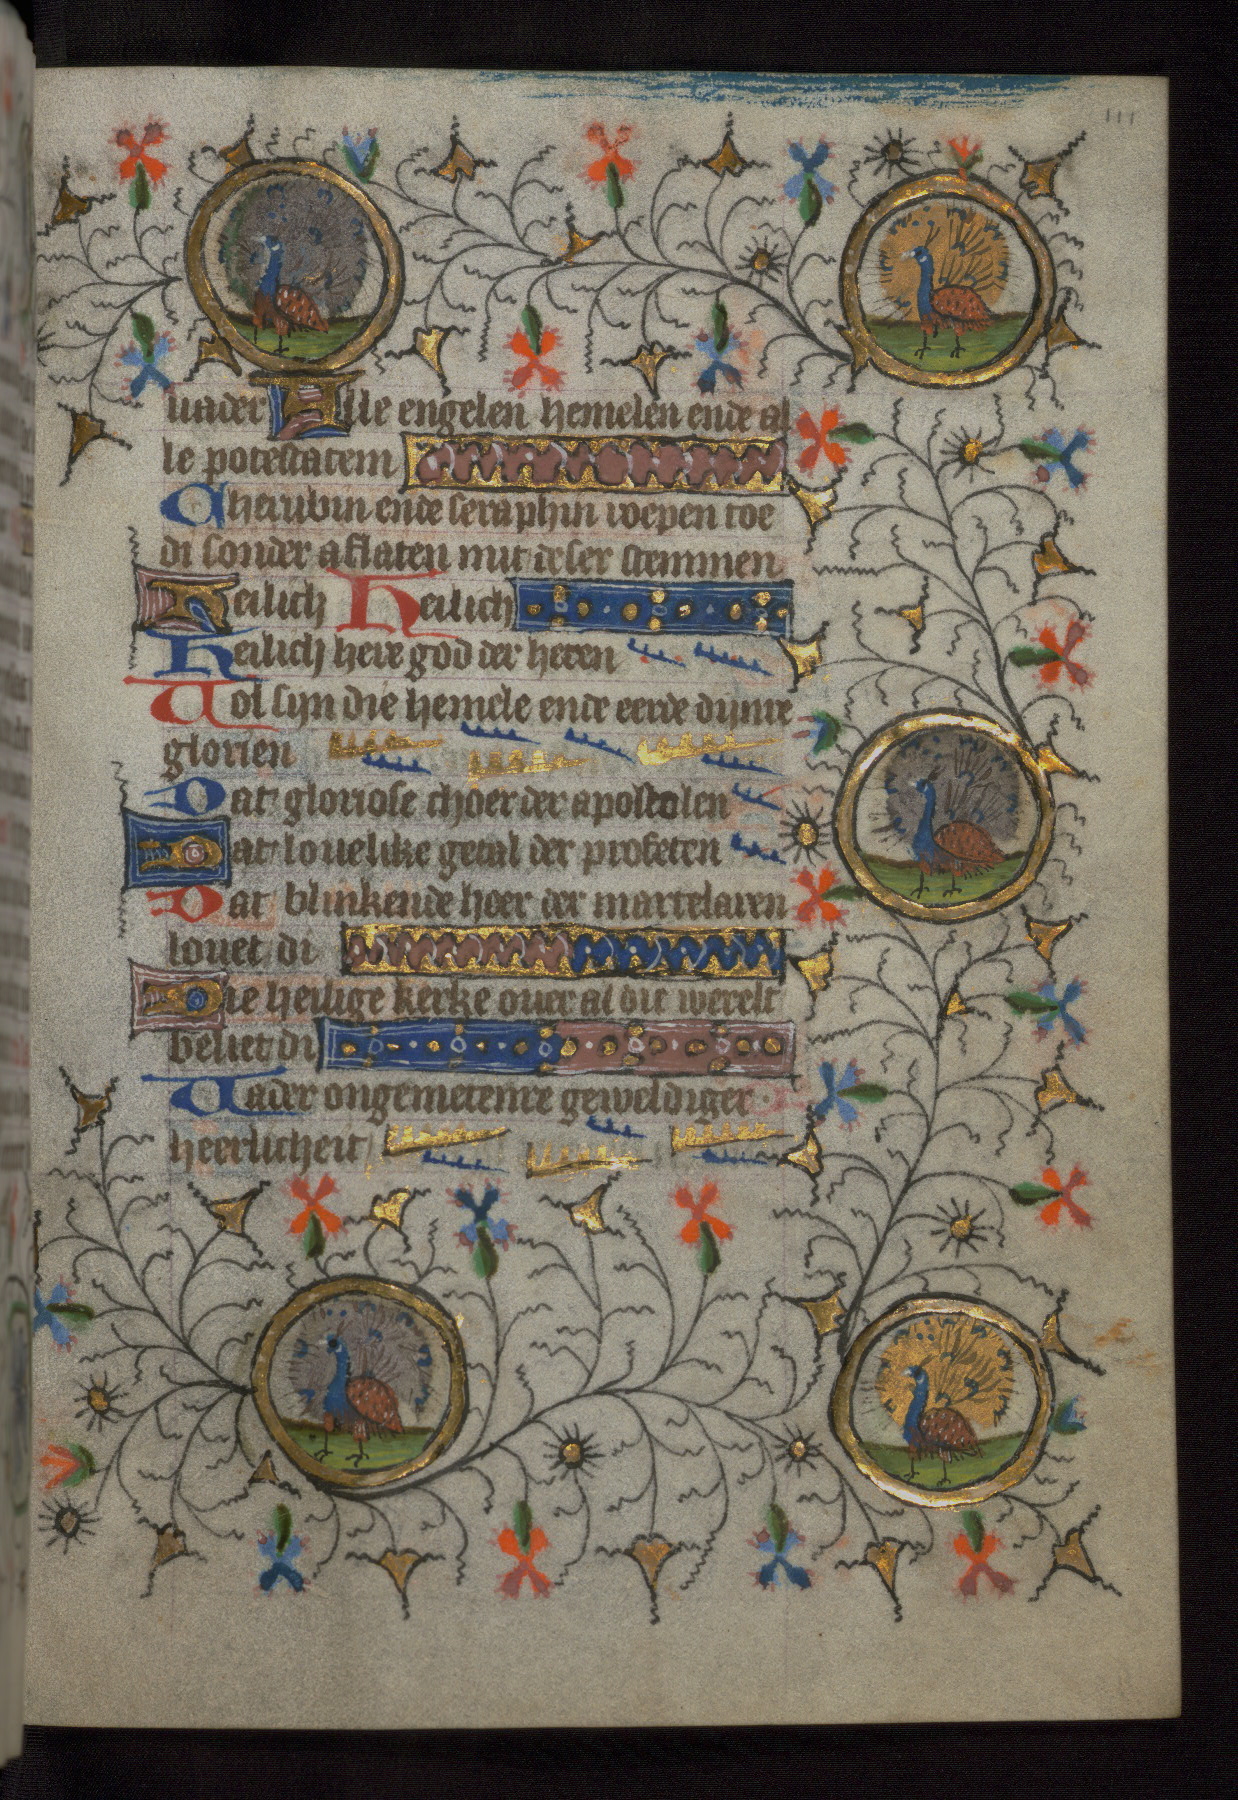 111
uader Alle engelen hemelen ende al
le potestatem
Cherubin ende seraphin roepen toe
di sonder aflaten mit deser stemmen
Heilich Heilich
Heilich here god der heren
Uol siin die hemele ende eerde diinre
glorien
Dat gloriose choer der apostolen
Dat louelike getal der profeten
Dat blinkende heer der martelaren
louet di
Die heilige kerke ouer al die werelt
beliet di
Uader ongemetenre geweldiger
heerlicheit